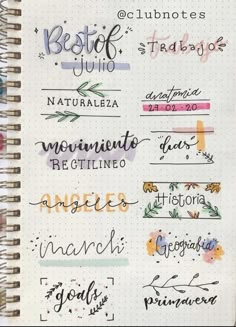 @clubnotes
Best of
julio
Trabajo
NATURALEZA
anatomia
27-02-20
movimiento
RECTILINEO
dias
ANGELES
angeles
Historia
march
Geografia
goals
primavera